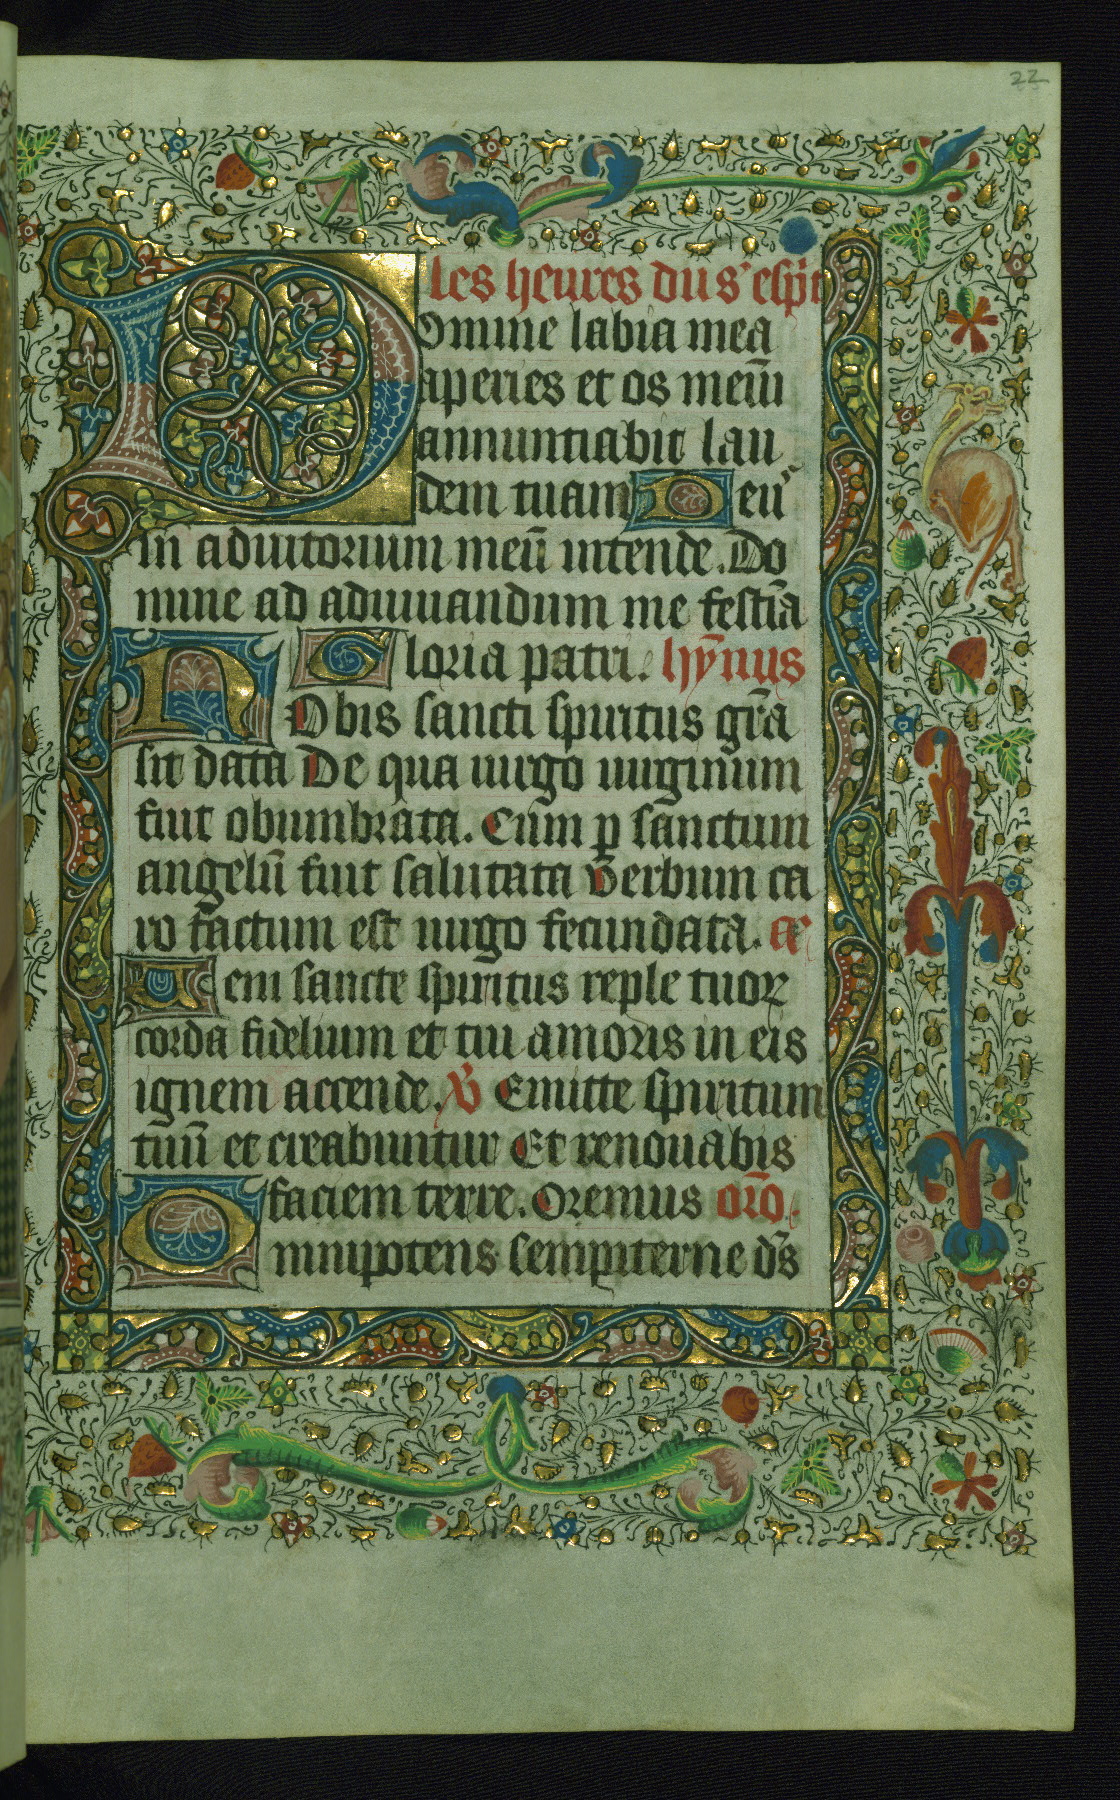 22
les heures du s' esp̄it
Domine labia mea
aperies et os meū
annuntiabit lau
dem tuam Deū
in adiutorium meū intende. Do
mine ad adiuuandum me festīa
Gloria patri. hȳnus
Nobis sancti spiritus grā
sit data De qua uirgo uirginum
fuit obumbrata. Cum ꝑ sanctum
angelū fuit salutata Verbum ca
ro factum est uirgo fecundata. a͞
Veni sancte spiritus reple tuoꝝ
corda fidelium et tui amoris in eis
ignem accende. ℣ Emitte spiritum
tuū et creabuntur Et renouabis
faciem terre. Oremus orō.
Omnipotens sempiterne ds̄